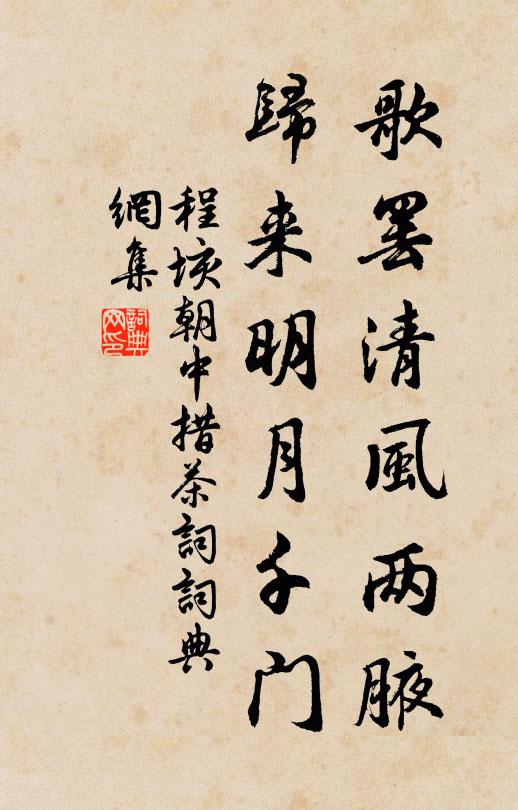 歌罢清風两腋
歸来明月千门
程垓朝中措茶詞詞典
網集
詞典网印